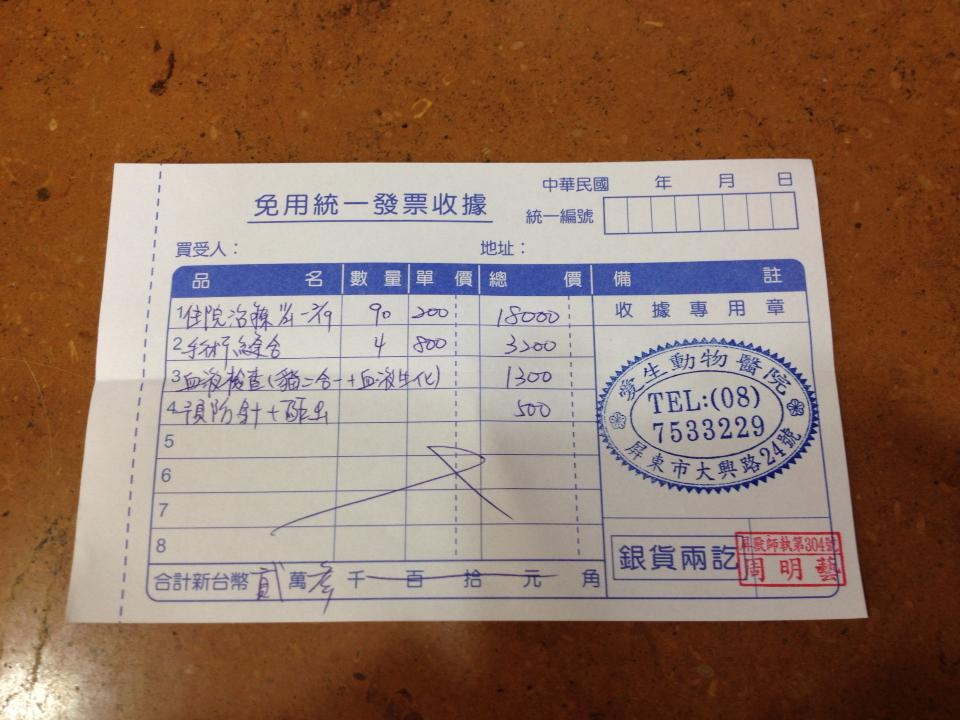 中華民國 年 月 日
免用統一發票收據
統一編號
買受人： 地址：
品名 數量 單價 總價 備註
1 住院治療 - 2/9 90 200 18000
收據專用章
2 手術縫合 4 800 3200
3 血液檢查(貓二合一+血液生化) 1300
4 預防針+ 500
5
6
7
8
愛生動物醫院
TEL:(08)
7533229
屏東市大興路24號
銀貨兩訖
師執第304號
周明藝
合計新台幣 貳 萬 參 千 百 拾 元 角